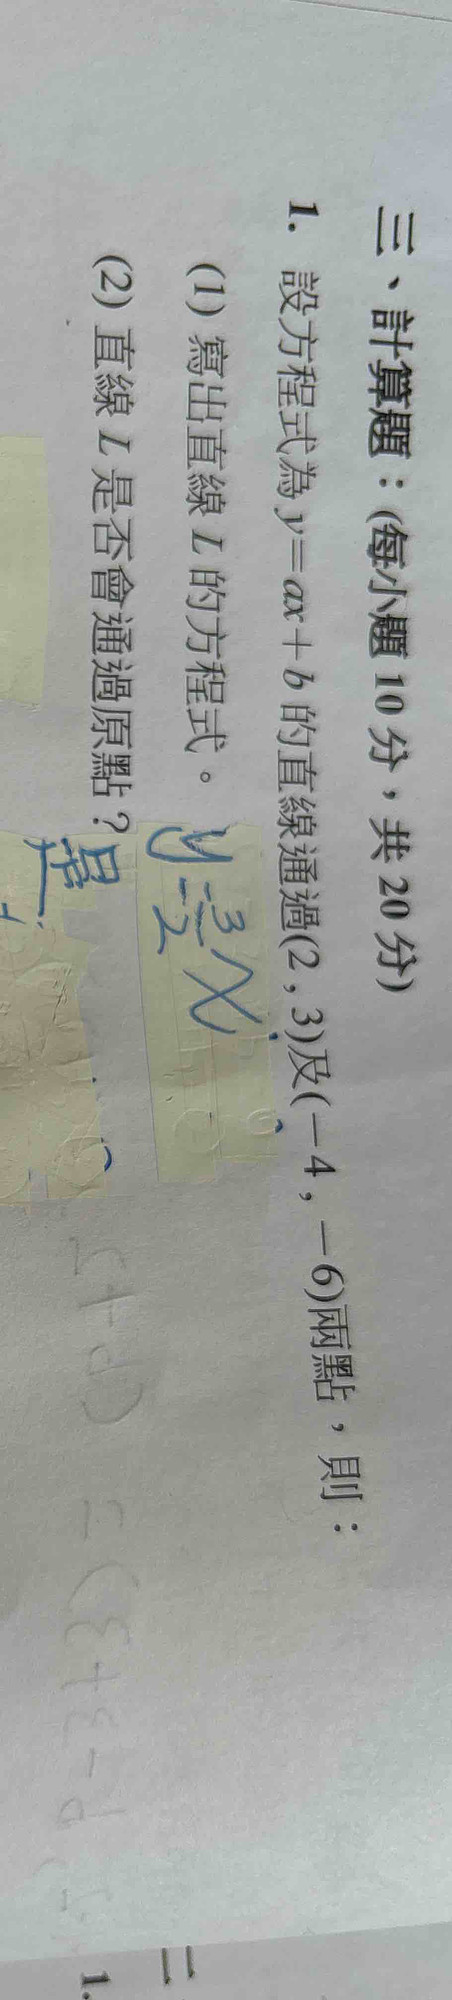 三、計算題：(每小題 10 分，共 20 分)
1. 設方程式為 y=ax+b 的直線通過(2，3)及(－4，－6)兩點，則：
(1) 寫出直線 L 的方程式。 y=3/2 x
(2) 直線 L 是否會通過原點？ 是
二
1.